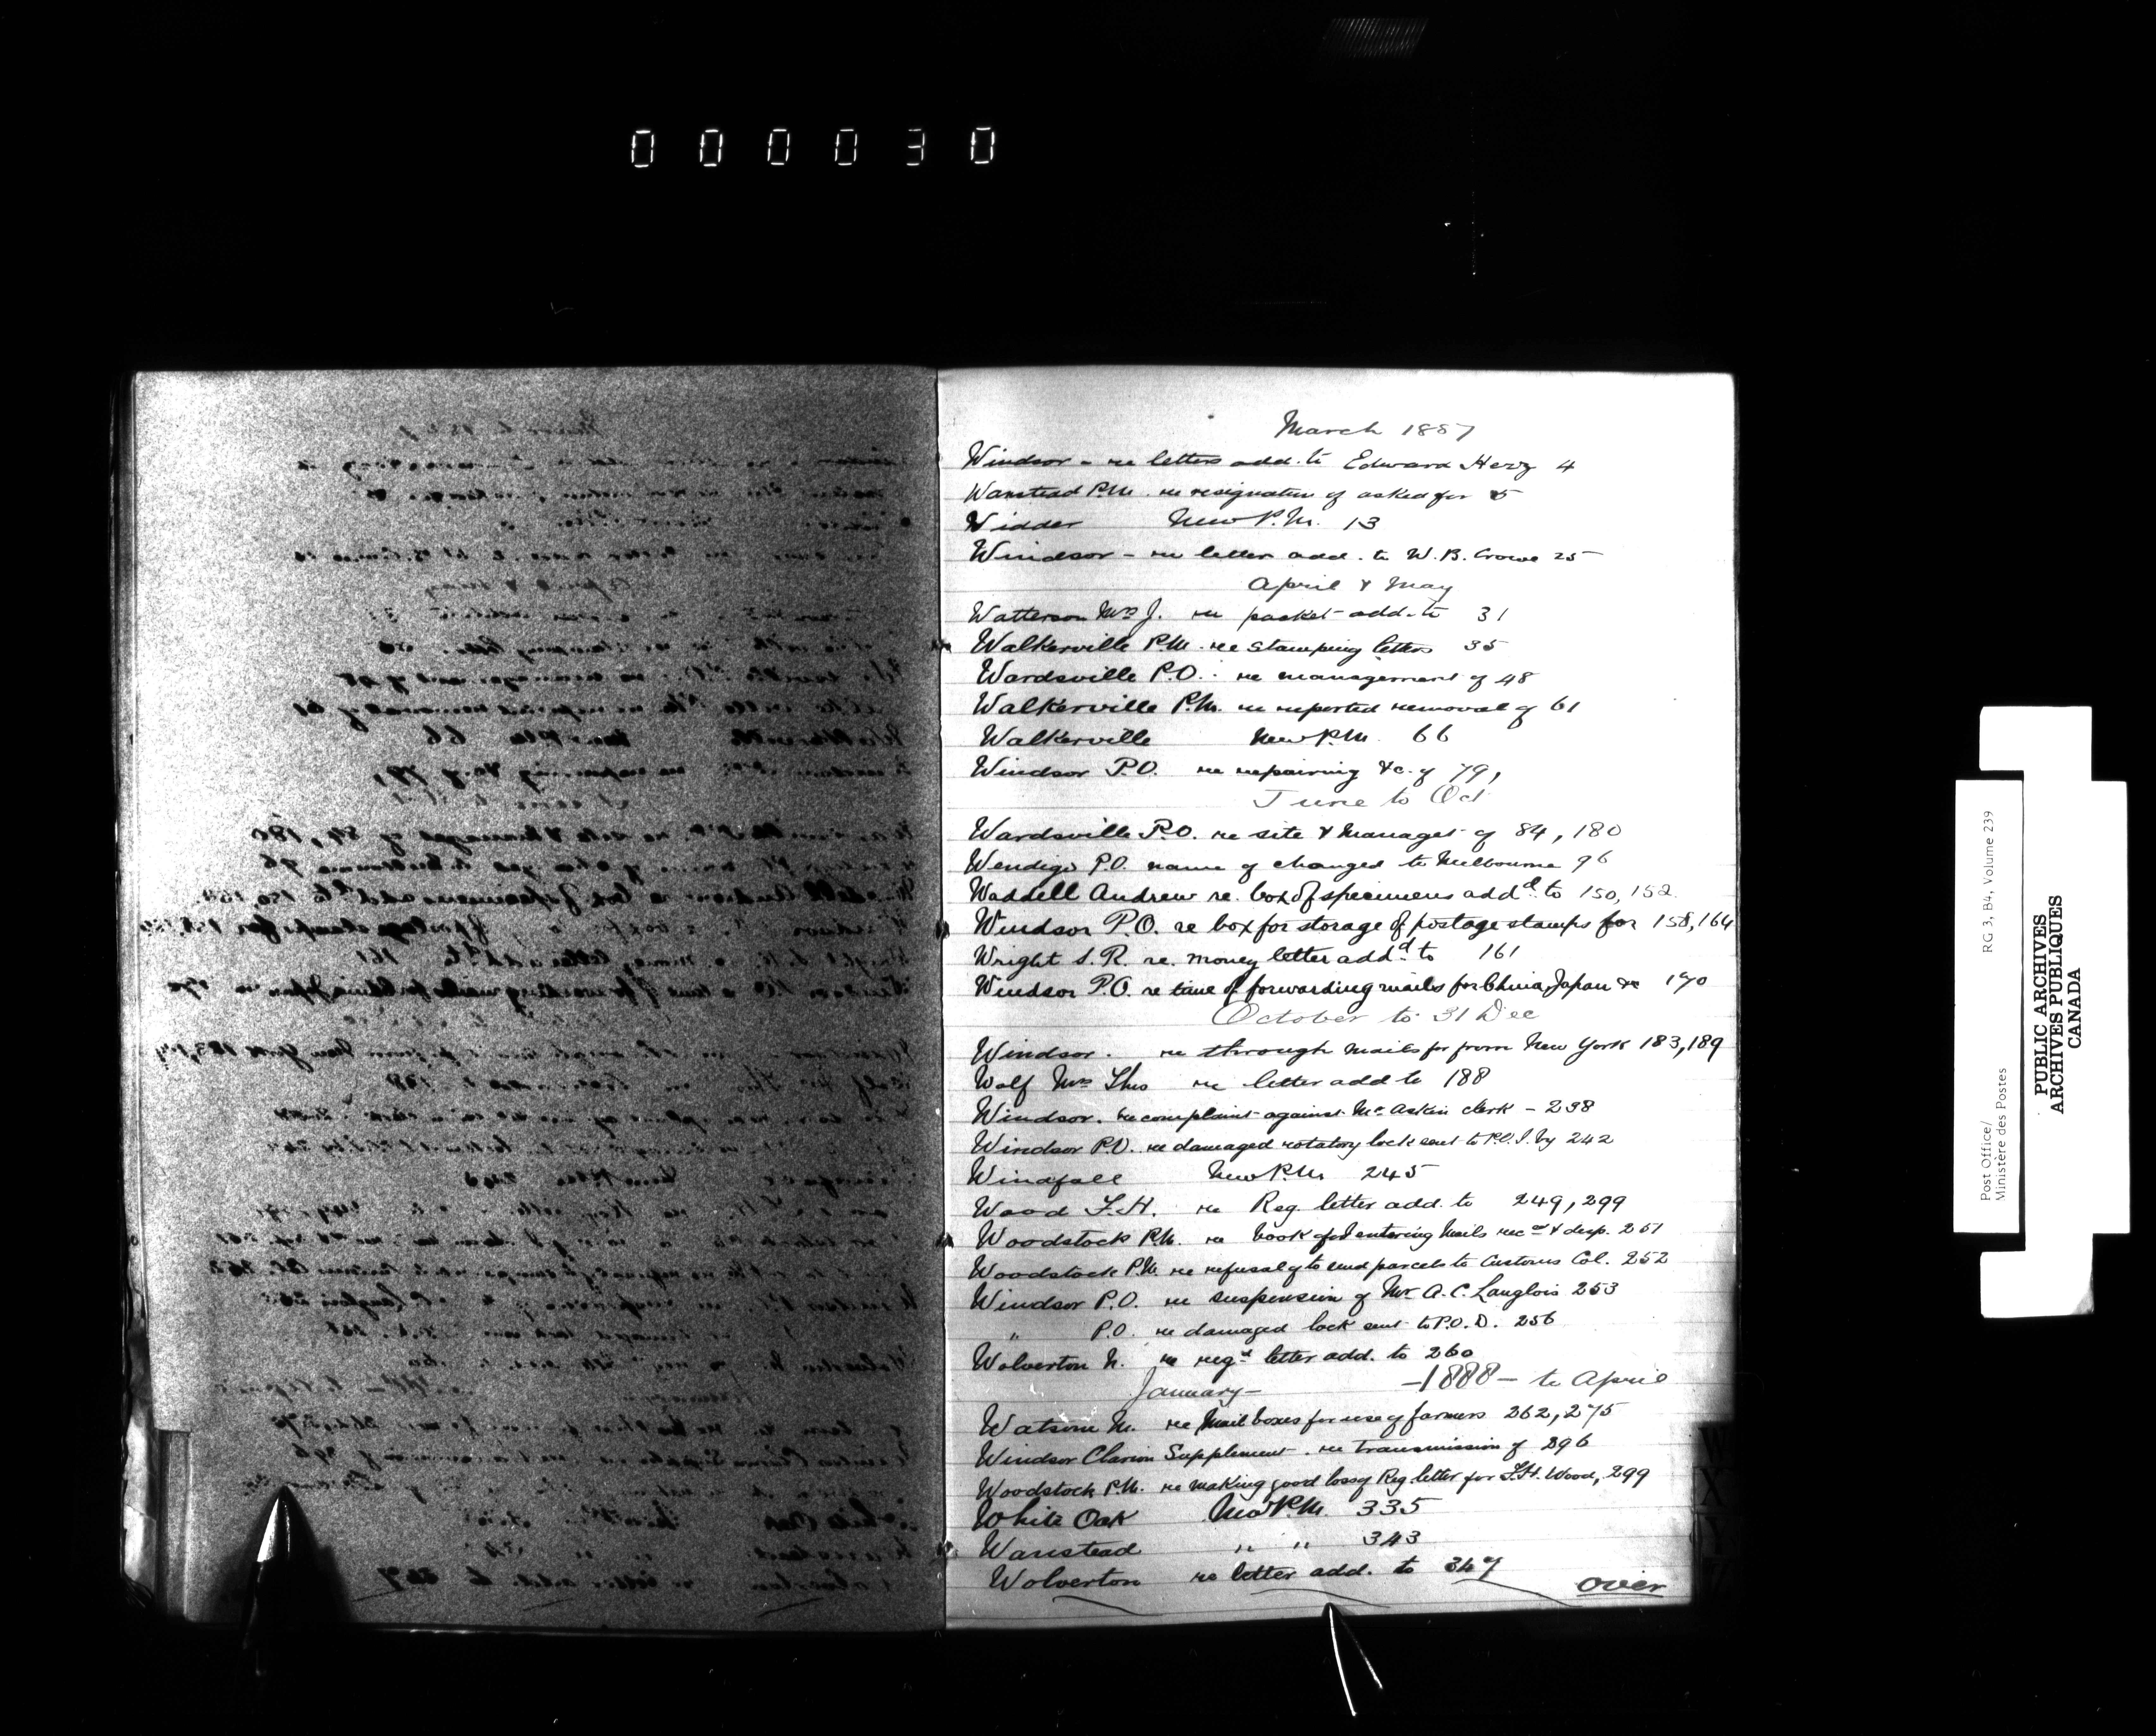 000030
March 1887
Windsor - re letters add. to Edward Herzg 4
Wanstead P.M. re resignation of asked for 5
Widder New P.M. 13
Windsor - re letter add. to W. B. Crowe 25
April & May
Watterson Mrs J. re packet add. to 31
Walkerville P.M. re stamping letters 35
Wardsville P.O. re management of 48
Walkerville P.M. re reported removal of 61
Walkerville New P.M. 66
Windsor P.O. re repairing &c. of 79,
June to Oct
Wardsville P.O. re site & managet of 84, 180
Wendigo P.O. name of changed to Melbourne 96
Waddell Andrew re. box of specimens addd. to 150, 152
Windsor P.O. re box for storage of postage stamps for 158, 164
Wright S. R. re. money letter addd. to 161
Windsor P.O. re time of forwarding mails for China, Japan &c 170
October to 31 Dec
Windsor. re through mails for from New York 183, 189
Wolf Mrs Thos re letter add to 188
Windsor. re complaint against Mc Askin clerk - 238
Windsor P.O. re damaged rotatory lock sent to P.O.I. by 242
Windfall New P.M. 245
Wood F. H. re Reg. letter add. to 249, 299
Woodstock P.M. re book for entering Mails rec & desp. 251
Woodstock P.M. re refusal of to send parcels to Customs Col. 252
Windsor P.O. re suspension of Mr. A. C. Langlois 253
" P.O. re damaged lock sent to P.O.D. 256
Wolverton N. re regd letter add. to 260
January - - 1888 - to April
Watson M. re Mail boxes for use of farmers 262, 275
Windsor Clarion Supplement. re transmission of 296
Woodstock P.M. re making good loss of Reg. letter for F.H. Wood, 299
White Oak New P.M. 335
Wanstead " " 343
Wolverton re letter add. to 347
over
W
X
Y
Z
Post Office/
Ministère des Postes
RG 3, B4, Volume 239
PUBLIC ARCHIVES
ARCHIVES PUBLIQUES
CANADA